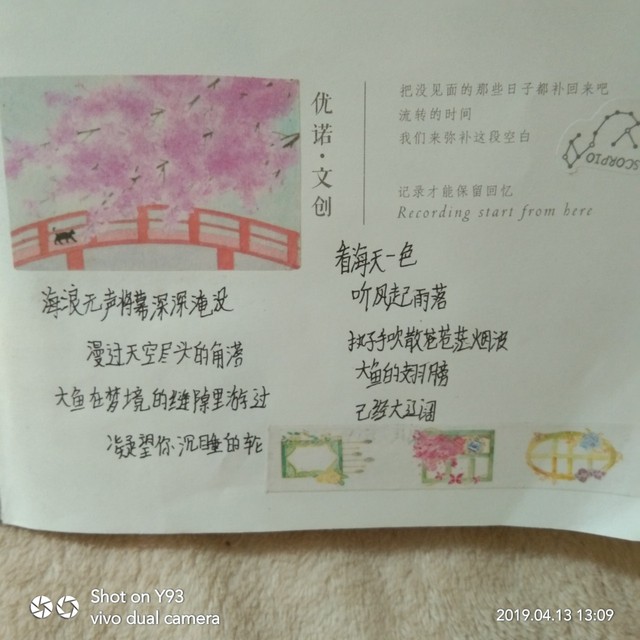 优诺·文创
把没见面的那些日子都补回来吧
流转的时间
我们来弥补这段空白
记录才能保留回忆
Recording start from here
SCORPIO
海浪无声将幕深深淹没
漫过天空尽头的角落
大鱼在梦境的缝隙里游过
凝望你沉睡的轮
看海天一色
听风起雨落
执子手吹散苍苍茫烟波
大鱼的翅膀
已经太辽阔
Shot on Y93
vivo dual camera
2019.04.13 13:09